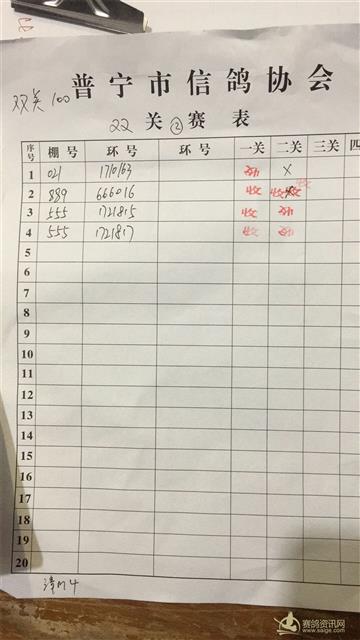 普宁市信鸽协会
双关 100
22 关 ② 赛 表
序号 棚号 环号 环号 一关 二关 三关 四
1 021 1710163 X
2 889 666016 收 收
3 555 1721815 收
4 555 1721817 收
5
6
7
8
9
10
11
12
13
14
15
16
17
18
19
20
赛鸽资讯网
www.saige.com